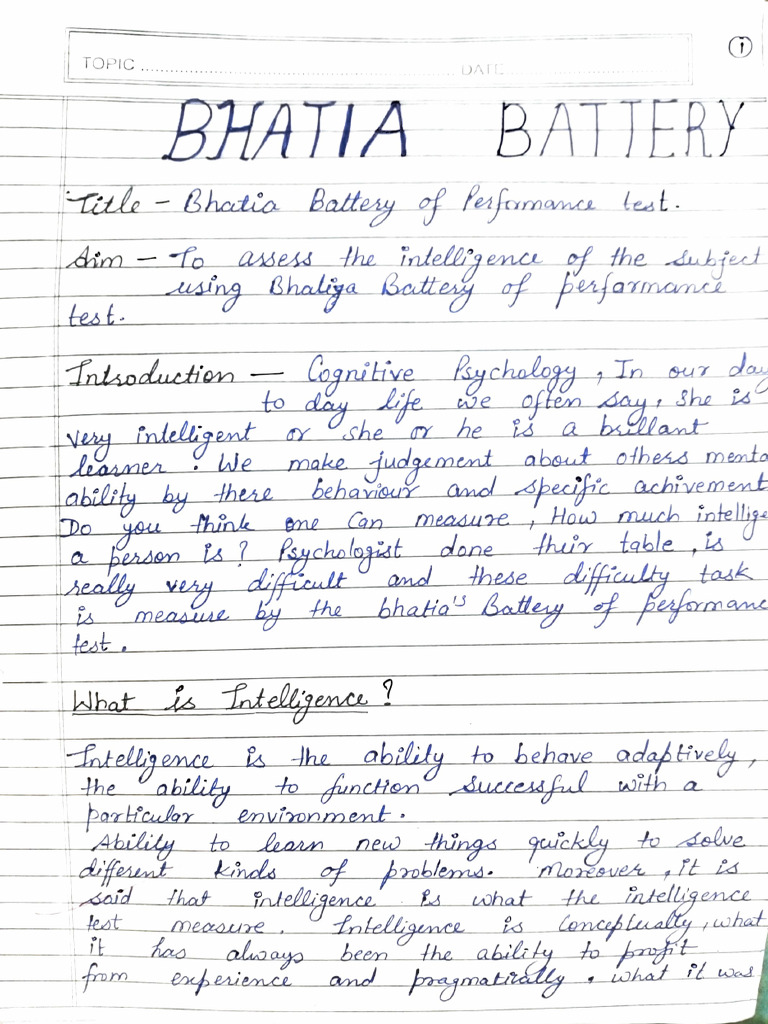 ①
TOPIC ........ DATE ........
BHATIA BATTERY
Title - Bhatia Battery of Performance test.
Aim - To assess the intelligence of the subject
using Bhatiya Battery of performance
test.
Introduction — Cognitive Psychology, In our day
to day life we often say, she is
very intelligent or she or he is a brillant
learner. We make judgement about others menta
ability by there behaviour and specific achivement
Do you think one Can measure, How much intellige
a person is? Psychologist done their table, is
really very difficult and these difficulty task
is measure by the bhatia's Battery of performanc
test.
What is Intelligence?
Intelligence is the ability to behave adaptively,
the ability to function successful with a
particular environment.
Ability to learn new things quickly to solve
different kinds of problems. Moreover, it is
said that intelligence is what the intelligence
test measure. Intelligence is Conceptually, what
it has always been the ability to profit
from experience and pragmatically. what it was